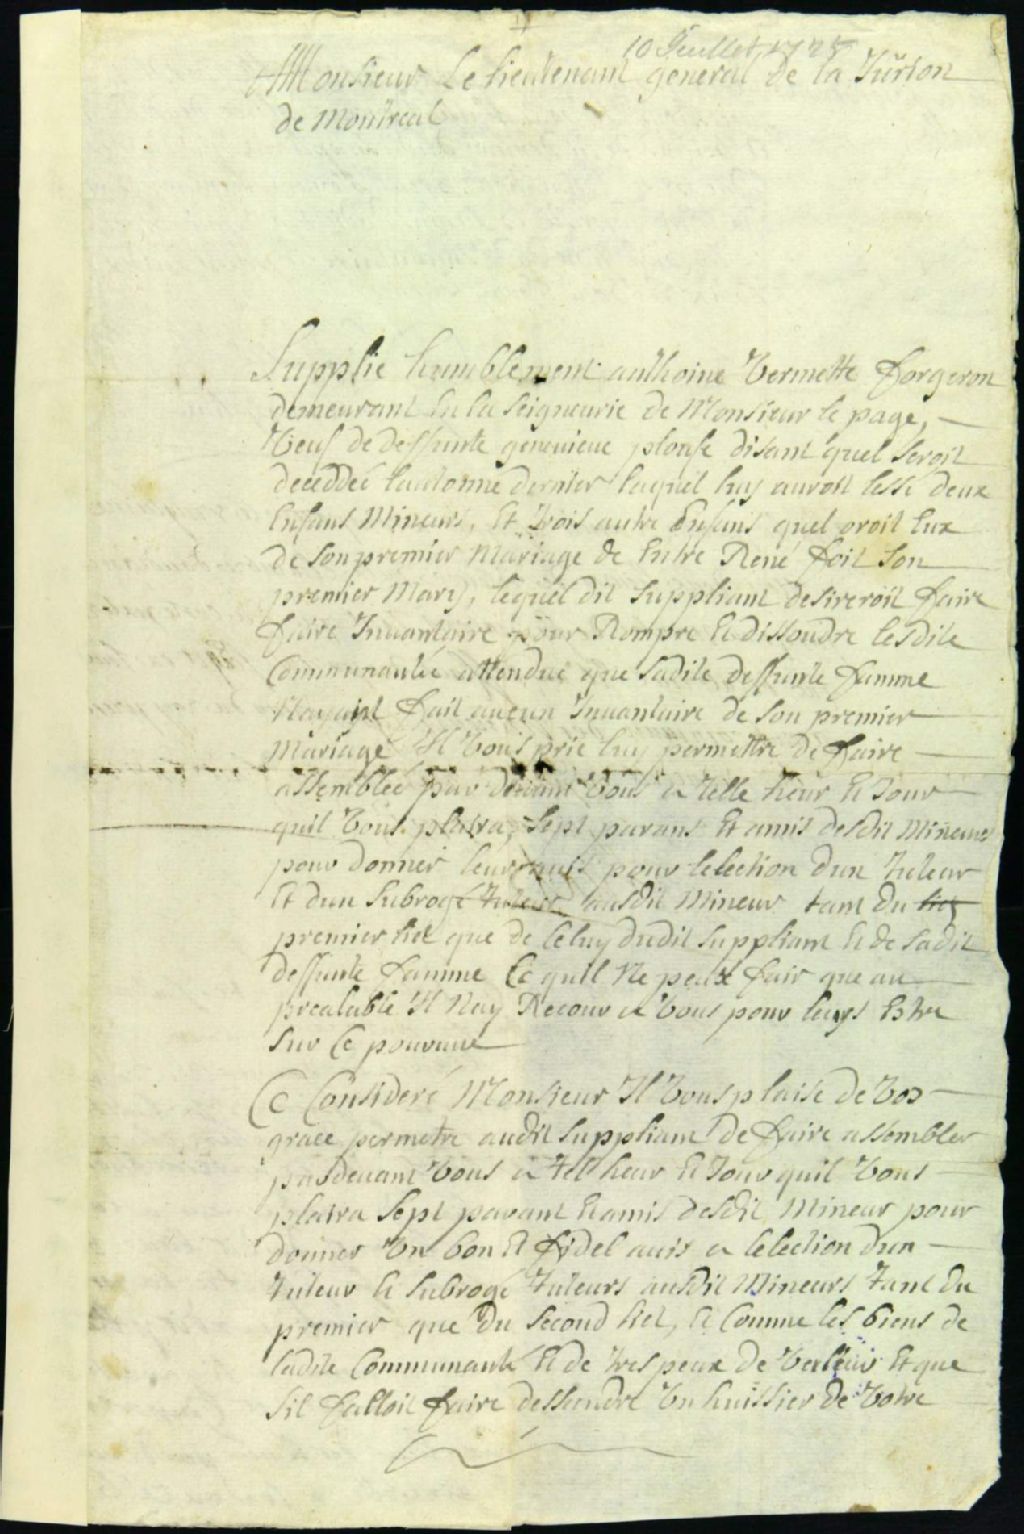 10 Jeuillet 1725
A Monsieur Le lieutenant general de la Jurion
de Montreal
Supplie humblement anthoine Vermette forgeron
demeurant En la seigneurie de Monsieur le page,
Veuf de deffunte genevieve plouse disant quel seroit
deceddée lautonne dernier laquel luy auroit lessé deux
Enfans Mineurs, Et trois autre Enfans quel oroit Eux
de son premier Mariage de Entre René foit son
premier Mary, lequel dit suppliant desireroit faire
faire Inuantaire pour Rompre Et dissoudre lesdite
Communautée attendue que sadite deffunte famme
Nayant fait aucun Inuantaire de son premier
Mariage Il Vous prie luy permettre de faire
assemblée par deuant Vous a telle heur Et Jour
quil Vous plaira, sept parans Et amis desdit Mineurs
pour donner leurs auis pour lelection dun tuteur
Et dun subrogé tuteur ausdit Mineur tant du
premier liet que de celuy dudit suppliant Et de sadit
deffunte famme Ce quil Ne peux fair que au
prealable Il Nay Recour a Vous pour luys Estre
sur Ce pourvue
Ce Consideré Monsieur Il Vous plaise de Vos
grace permetre audit suppliant de faire assembler
pardeuant Vous a tel heur Et Jour quil Vous
plaira sept parant Et amis desdit Mineur pour
donner Vn bon Et fidel auis a lelection dun
tuteur Et subrogé tuteurs ausdit Mineurs tant du
premier que du second liet, Et Comme les biens de
ladite Communauté Et de tres peux de Valleur Et que
sil falloit faire dessandre Vn huissier de Votre